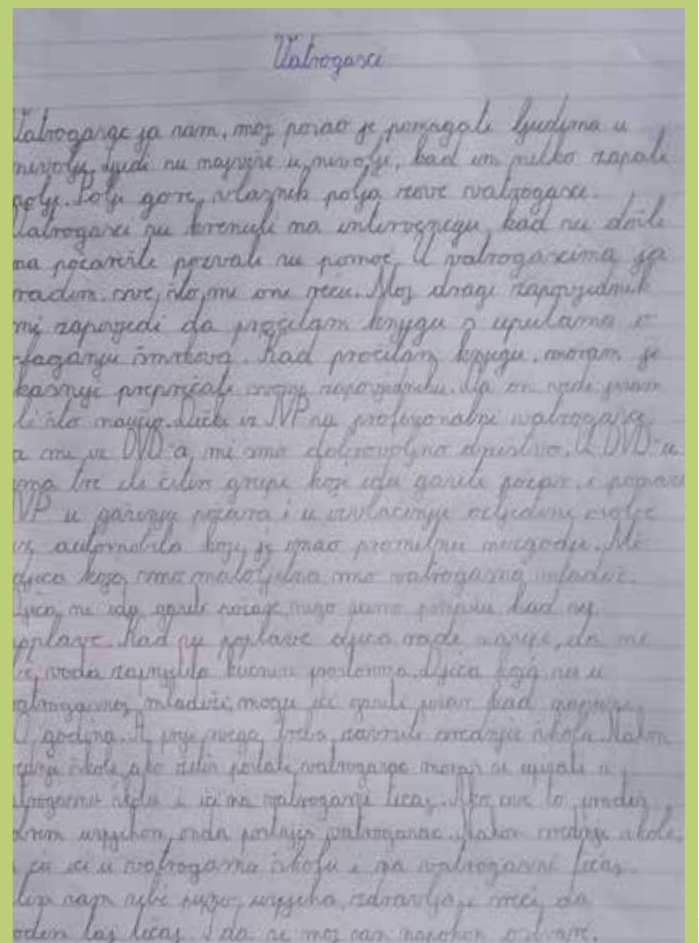 Vatrogasci
Vatrogasac ja sam, moj posao je pomagati ljudima u
nevolji, ljudi su najviše u nevolji, kad im netko zapali
polje. Polje gori, vlasnik polja zove vatrogasce.
Vatrogasci su krenuli na intervenciju, kad su došli
na požarište pozvali su pomoć. U vatrogascima ja
radim sve, što mi oni reću. Moj dragi zapovjednik
mi zapovjedi da pročitam knjigu o uputama o
slaganju šmrkova. Kad pročitam knjigu, moram je
kasnije prepričati svome zapovjedniku. Da on vidi jesam
li što naučio. Dečki iz JVP su profesionalni vatrogasci,
a mi iz DVD-a, mi smo dobrovoljno društvo. U DVD-u
ima tri ili četiri grupe koji idu gasiti požar, i pomaže
JVP u gašenju požara i u izvlačenju ozljeđene osobe
iz automobila koji je imao prometnu nezgodu. Mi
djeca koja smo maloljetna smo vatrogasna mladež.
Djeca ne idu gasiti požare, nego samo pomažu kad su
poplave. Kad su poplave djeca rade nasipe, da ne
bi voda zaprijetila kućnim prostorima. Djeca koja su u
vatrogasnoj mladeži, mogu ići gasiti požar kad napune
godina. A prije svega treba završiti srednju školu. Nakon
srednje škole, ako želiš postati vatrogasac moraš se upisati u
vatrogasnu školu i ići na vatrogasni tečaj. Ako sve to prođeš
dobrim uspjehom, onda postaješ vatrogasac. Nakon srednje škole,
ja ću ići u vatrogasnu školu i na vatrogasni tečaj.
Želim sam sebi puno uspjeha, zdravlja i sreći, da
prođem taj tečaj. I da se moj san napokon ostvari.